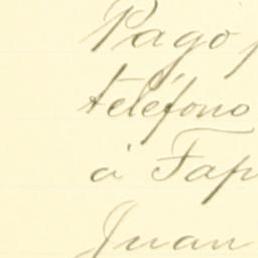 Pagó p
teléfono
á Tap
Juan